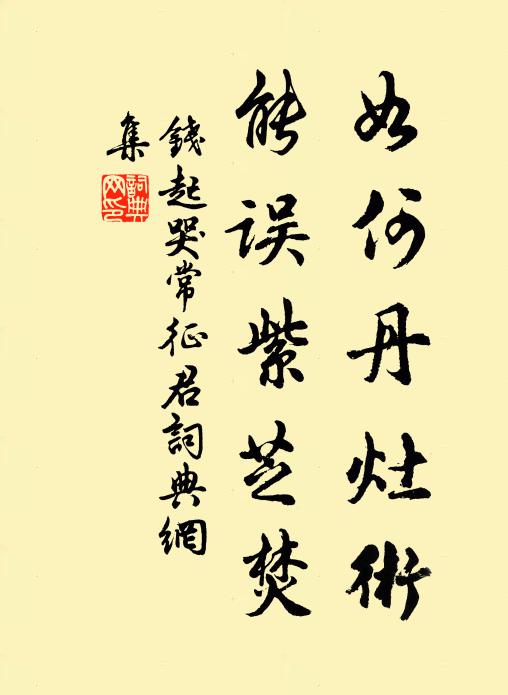 如何丹灶術
能误紫芝焚
錢起哭常征君詞典網
集
詞典網印